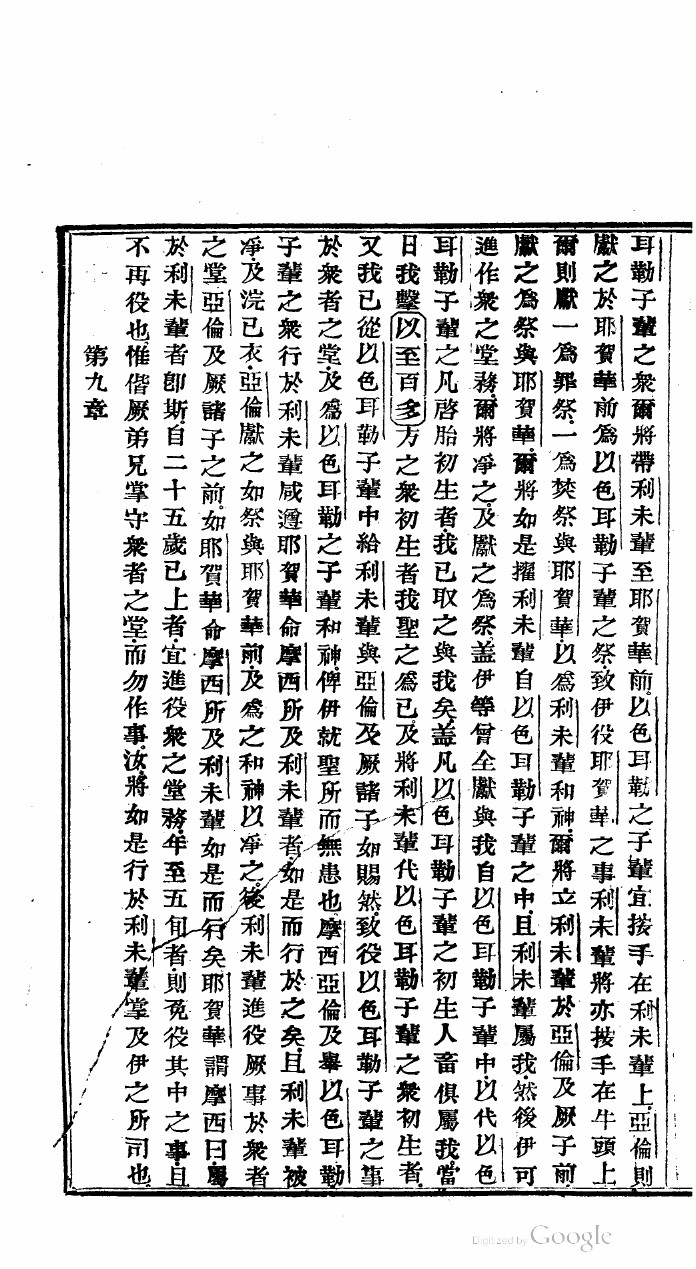 耳勒子輩之衆爾將帶利未輩至耶賀華前。以色耳勒之子輩宜按手在利未輩上。亞倫則
獻之於耶賀華前爲以色耳勒子輩之祭、致伊役耶賀華之事、利未輩將亦按手在牛頭上
爾則獻一爲罪祭、一爲焚祭與耶賀華、以爲利未輩和神。爾將立利未輩於亞倫及厥子前
獻之爲祭與耶賀華。爾將如是擢利未輩自以色耳勒子輩之中、且利未輩屬我。然後伊可
進作衆之堂務、爾將凈之、及獻之爲祭、盖伊等曾全獻與我自以色耳勒子輩中、以代以色
耳勒子輩之凡啓胎初生者、我已取之與我矣。盖凡以色耳勒子輩之初生人畜俱屬我、當
日我擊以至百多方之衆初生者我聖之爲已、及將利未輩代以色耳勒子輩之衆初生者。
又我已從以色耳勒子輩中給利未輩與亞倫及厥諸子如賜然、致役以色耳勒子輩之事
於衆者之堂、及爲以色耳勒之子輩和神、俾伊就聖所而無患也。摩西亞倫及舉以色耳勒
子輩之衆行於利未輩咸遵耶賀華命摩西所及利未輩者、如是而行於之矣。且利未輩被
凈、及浣已衣、亞倫獻之如祭與耶賀華前、及爲之和神以凈之。後利未輩進役厥事於衆者
之堂亞倫及厥諸子之前。如耶賀華命摩西所及利未輩如是而行矣。耶賀華謂摩西曰、屬
於利未輩者卽斯、自二十五歲已上者、宜進役衆之堂務、年至五旬者、則免役其中之事、且
不再役也。惟偕厥弟兄掌守衆者之堂、而勿作事、汝將如是行於利未輩掌及伊之所司也。
第九章
Digitized by Google